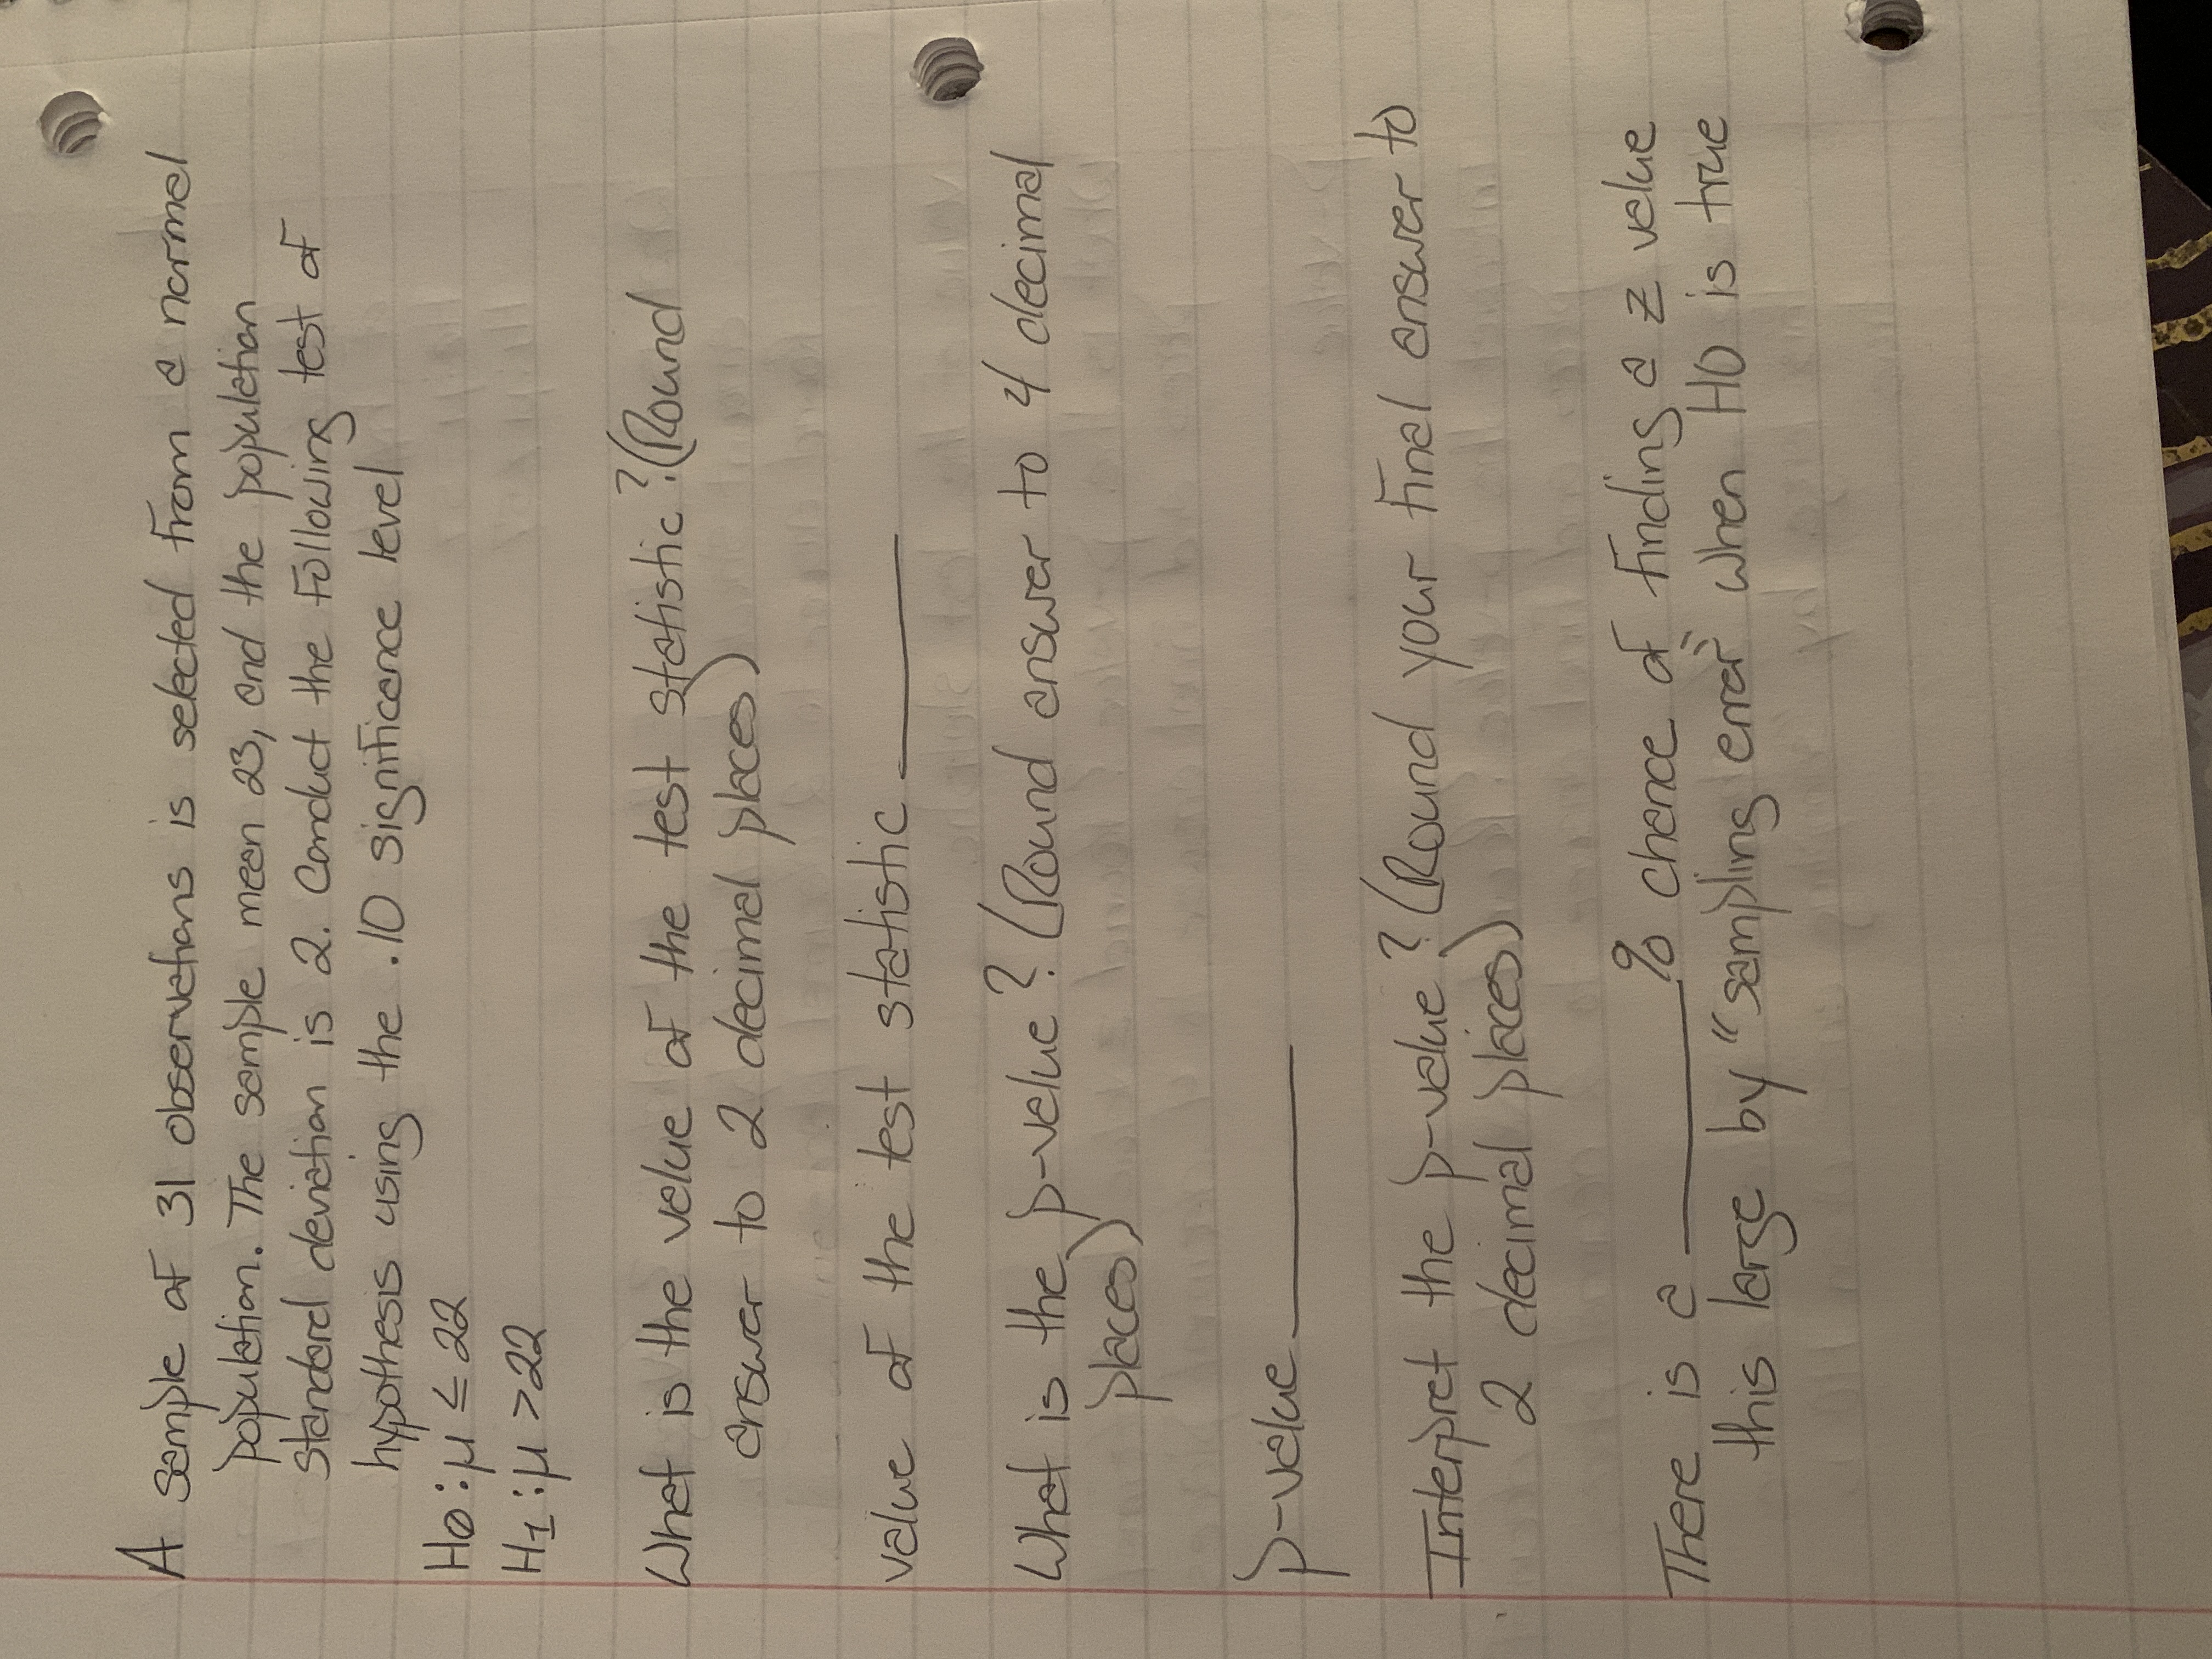 A sample of 31 observations is selected from a normal
population. The sample mean 23, and the population
standard deviation is 2. Conduct the following test of
hypothesis using the .10 significance level
H0:μ ≤ 22
H1:μ >22
What is the value of the test statistic?(Round
answer to 2 decimal places)
value of the test statistic
What is the p-value? (Round answer to 4 decimal
places)
p-value
Interpret the p-value? (Round your final answer to
2 decimal places)
There is a ____% chance of finding a z value
this large by "sampling error" when H0 is true